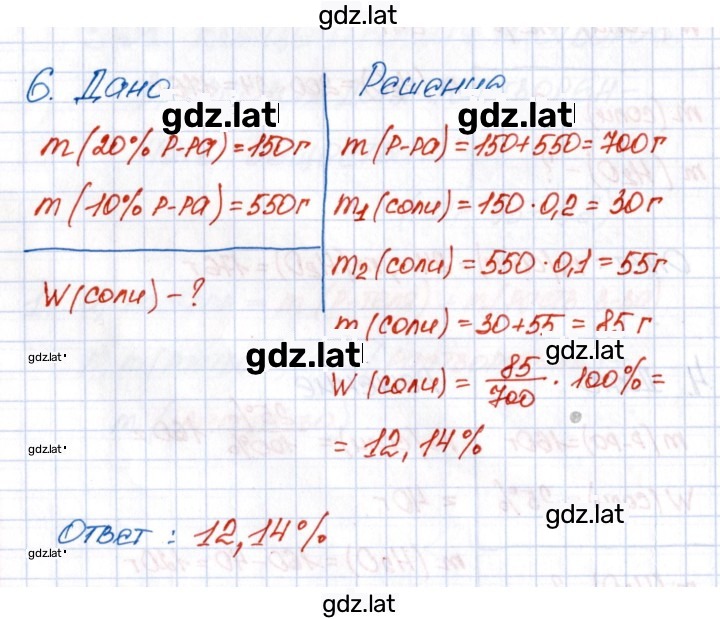 gdz.lat
6. Дано
Решение
gdz.lat
gdz.lat
m(20% р-ра)=150г
m(р-ра)=150+550=700г
m(10% р-ра)=550г
m₁(соли)=150·0,2=30г
m₂(соли)=550·0,1=55г
W(соли)-?
m(соли)=30+55=85г
gdz.lat
gdz.lat
gdz.lat
W(соли)=85/700·100%=
=12,14%
gdz.lat
gdz.lat
Ответ: 12,14%
gdz.lat
gdz.lat